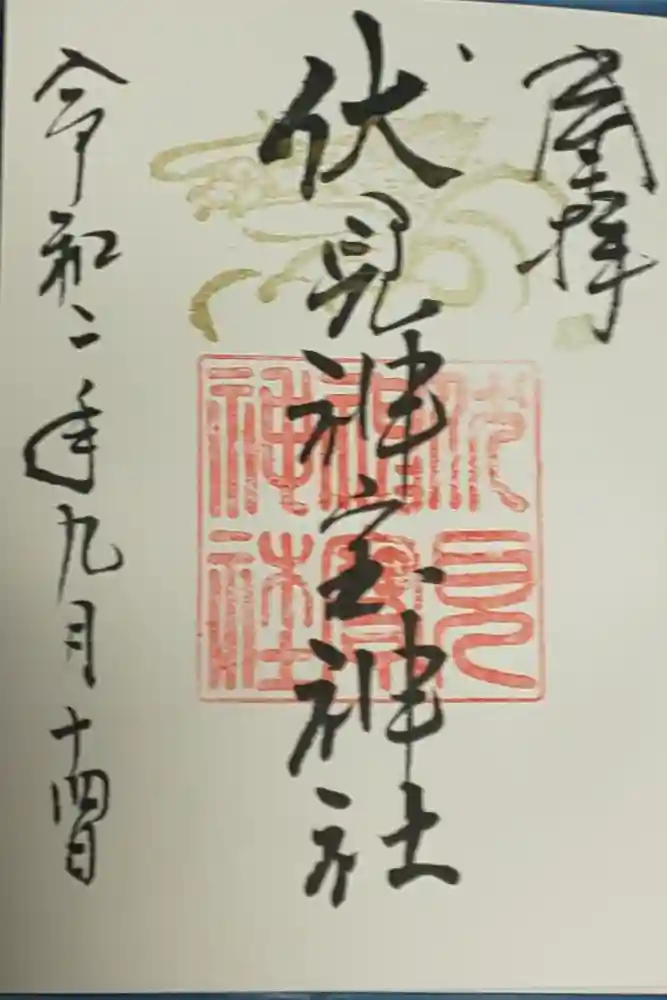 奉拝
伏見神宝神社
伏見
神寶
神社
令和二年九月十四日